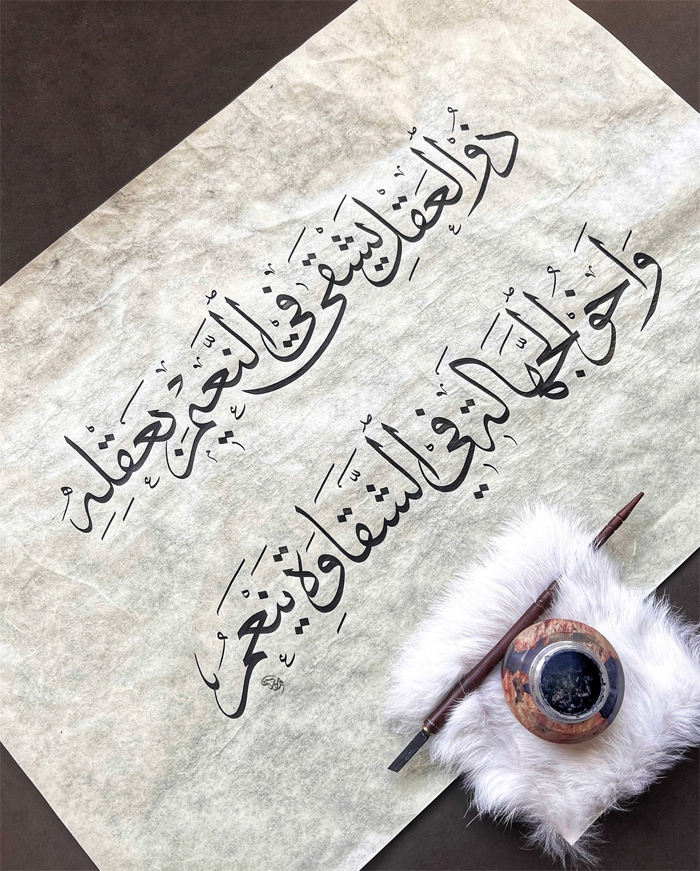 ذُو الْعَقْلِ يَشْقَى فِي النَّعِيمِ بِعَقْلِهِ
وَأَخُو الْجَهَالَةِ فِي الشَّقَاوَةِ يَنْعَمُ